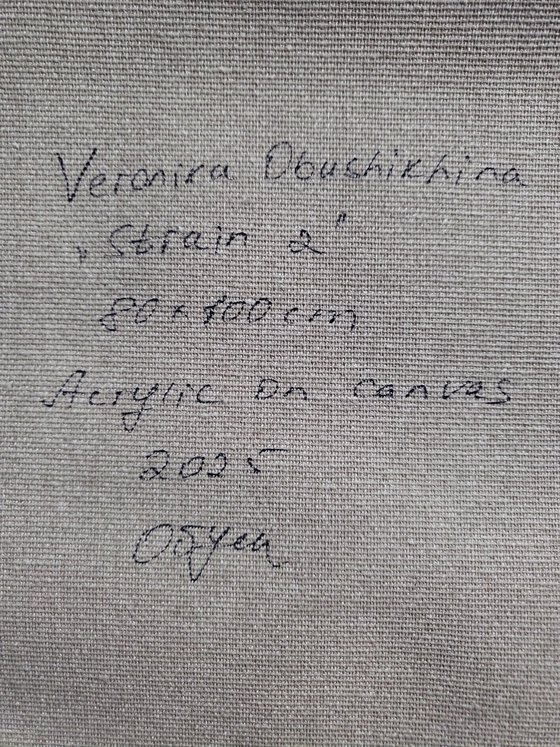 Veronika Obushikhina
„Strain 2"
80 x 100 cm
Acrylic on canvas
2025